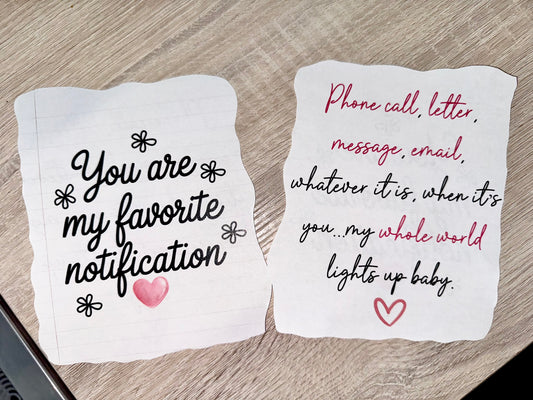 You are
my favorite
notification
Phone call, letter,
message, email,
whatever it is, when it's
you...my whole world
lights up baby.